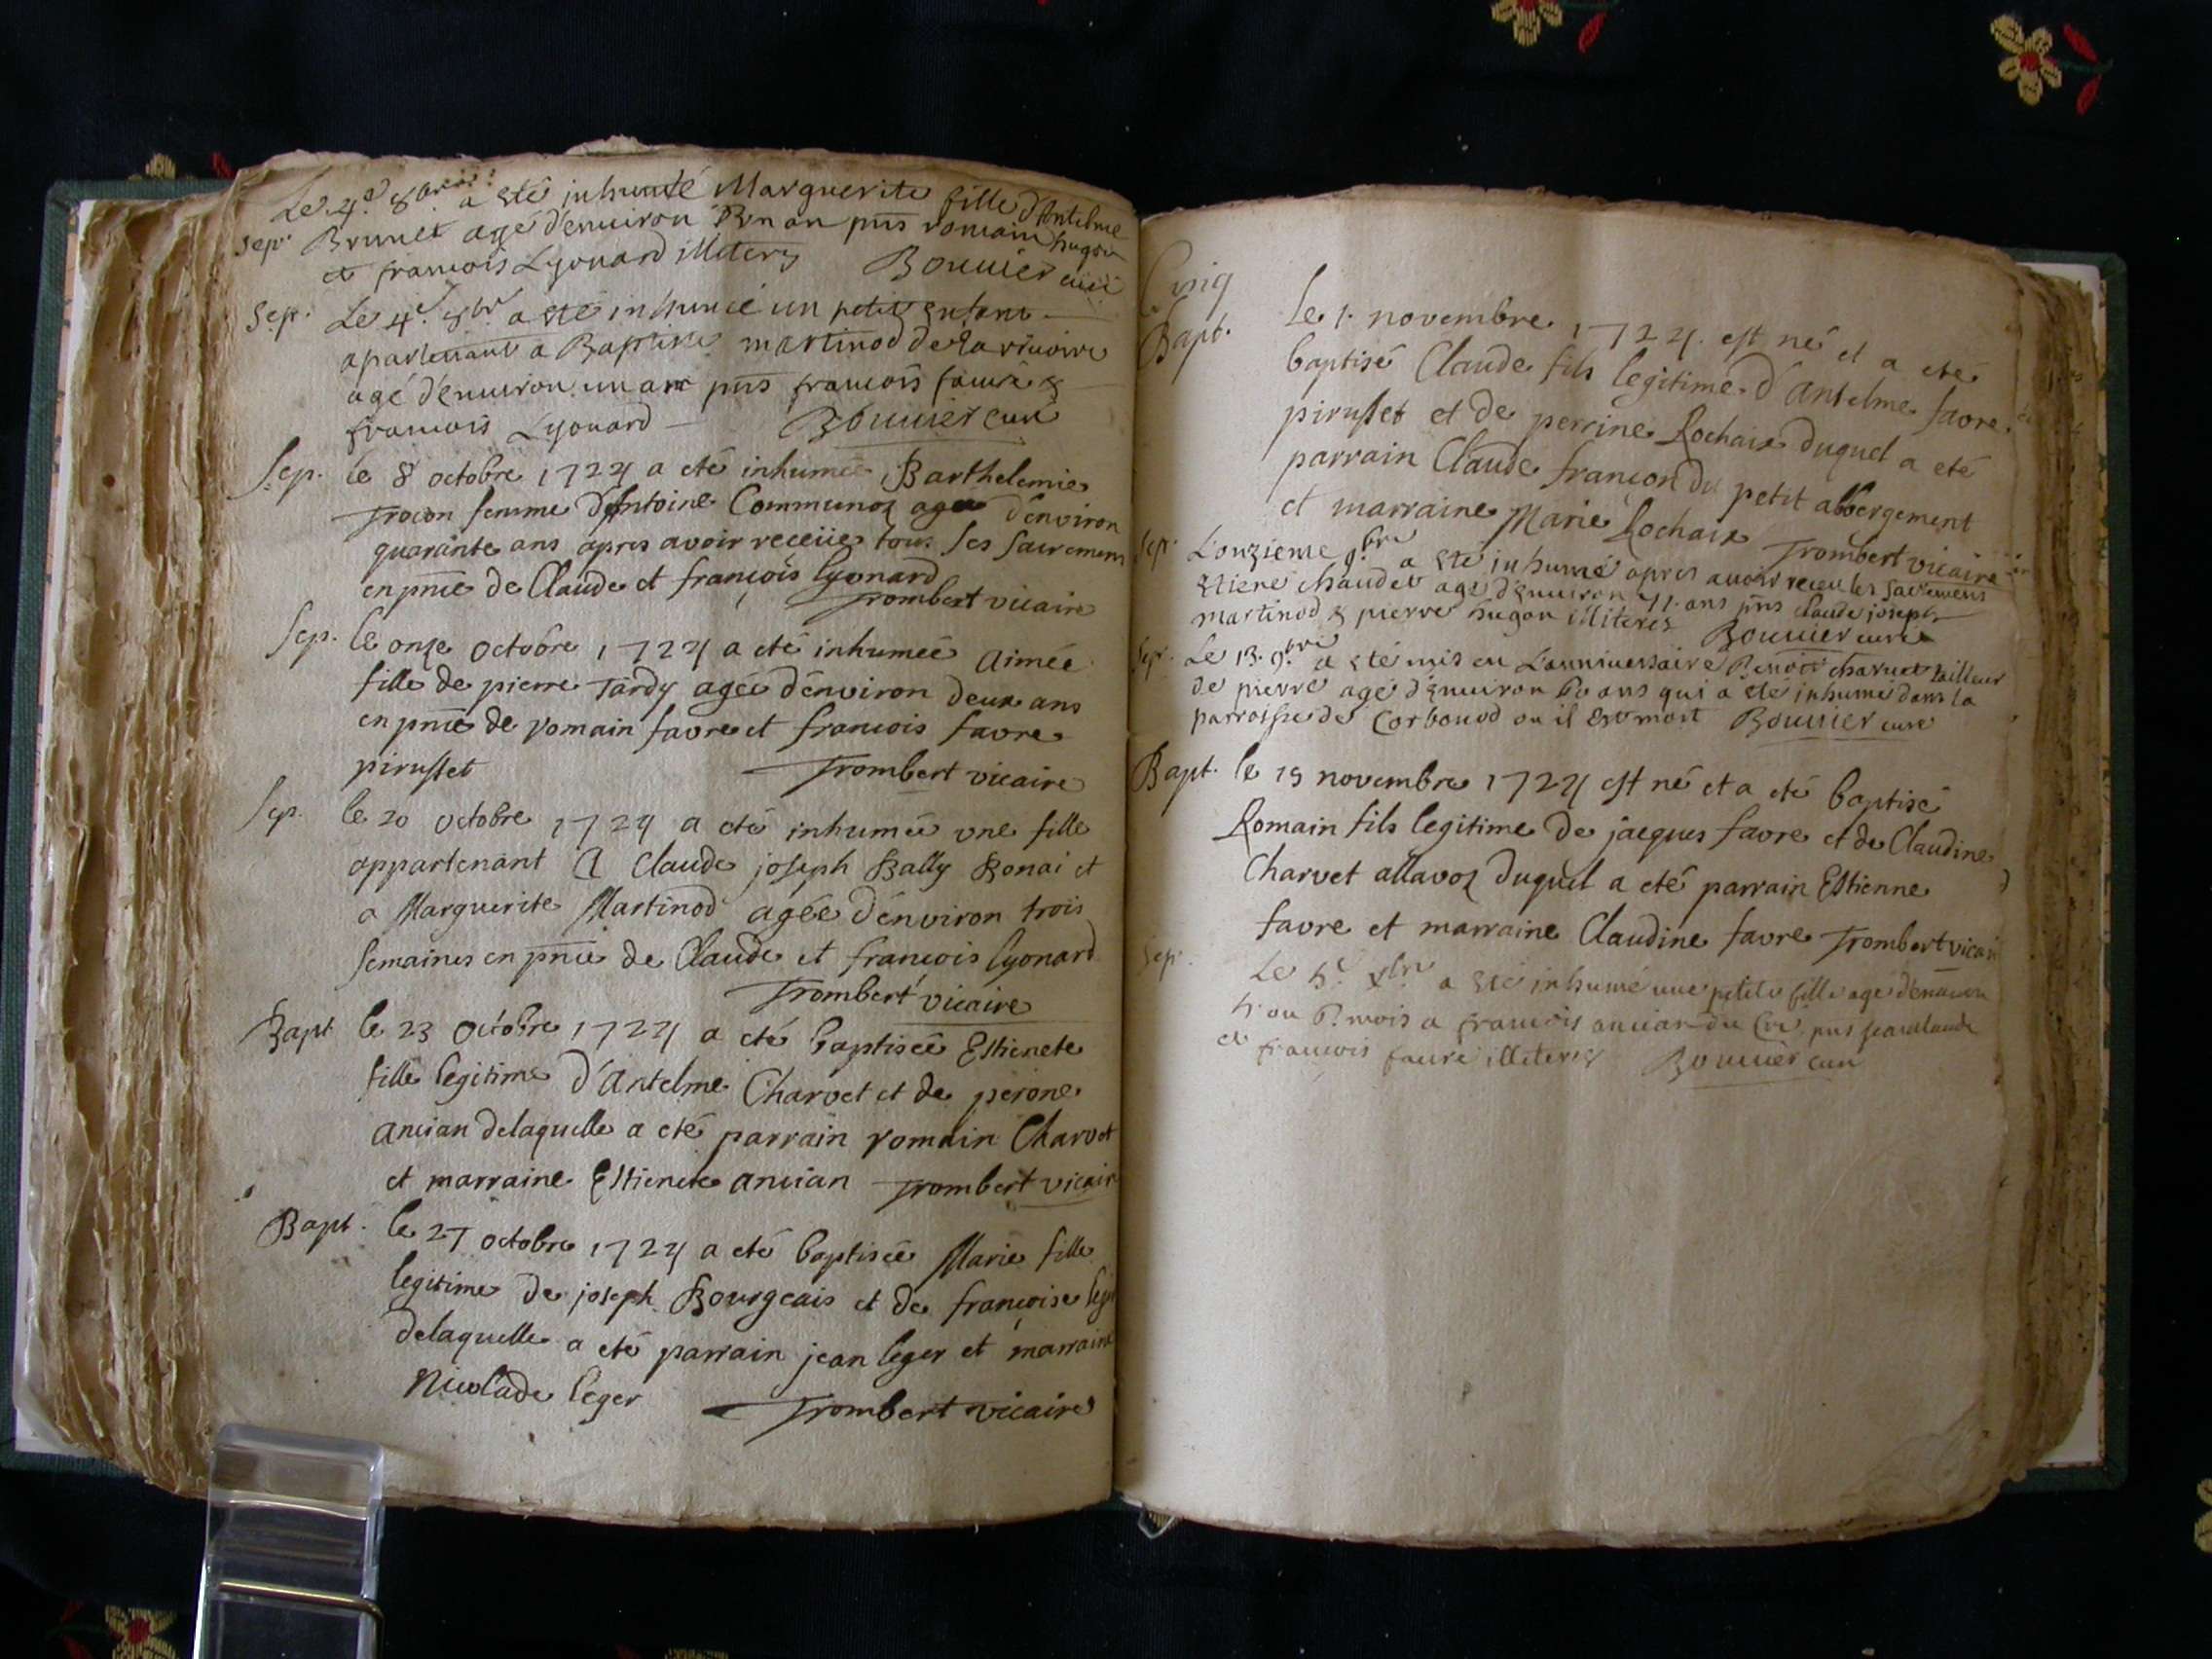 Le 4e 8bre a êté inhumé Marguerite fille d'Antelme
Sep. Brunet agé d'enuiron Un an pñs romain hugon
et francois Lyonard illiterz Bouuier curé
Sep. Le 4e 8br a êté inhumé un petit enfant
apartenant a Baptiste martinod de la riuoire
agé d'enuiron un an pñs francois faure &
francois Lyonard Bouuier curé
Sep. le 8 octobre 1724 a eté inhumée Barthelemie
Trocon femme d'Antoine Communoz agee d'environ
quarante ans apres avoir receüe tous ses sacremens
en pñce de Claude et françois lyonard
Trombert vicaire
Sep. le onze octobre 1724 a eté inhumeé aimée
fille de pierre Tardy agée d'environ deux ans
en pñce de romain favre et francois favre
pirustet Trombert vicaire
Sep. le 20 octobre 1724 a eté inhumée une fille
appartenant a Claude joseph Bally Bonai et
a Marguerite Martinod agée d'environ trois
semaines en pñce de Claude et francois lyonard
Trombert vicaire
Bapt le 23 octobre 1724 a eté baptiseé Estienete
fille legitime d'Antelme Charvet et de perone
ancian delaquelle a eté parrain romain Charvet
et marraine Estienete ancian Trombert vicair
Bapt. le 27 octobre 1724 a eté baptiseé Marie fille
legitime de joseph Bourgeais et de françoise leg
delaquelle a eté parrain jean leger et marraine
Nicolade leger Trombert vicaire
Bapt. le 1. novembre 1724. est né et a eté
baptisé Claude fils legitime d'Antelme favre
pirustet et de perrine Rochaix duquel a eté
parrain Claude francon du petit abbergement
et marraine Marie Rochaix Trombert vicaire
Sep. L'onzieme 9.bre a êté inhumé apres auoir receu les sacremens
Etiene chaudet agé d'enuiron ans pñs claude joseph
martinod & pierre hugon illiterez Bouuier curé
Sep. Le 13. 9.bre a êté mis en L'anniuersaire Benoit charuet tailleur
de pierre agé d'enuiron 60 ans qui a êté inhumé dans la
parroisse de Corbonod ou il est mort Bouuier curé
Bapt. le 19 novembre 1724 est né et a eté baptisé
Romain fils legitime de jacques favre et de Claudine
Charvet allavoz duquel a eté parrain Estienne
favre et marraine Claudine favre Trombert vicair
Sep. Le 5e xbre a êté inhumé une petite fille agé d'enuiron
5. ou 6. mois a francois ancian du pñs jean claude
et francois faure illiterez Bouuier curé